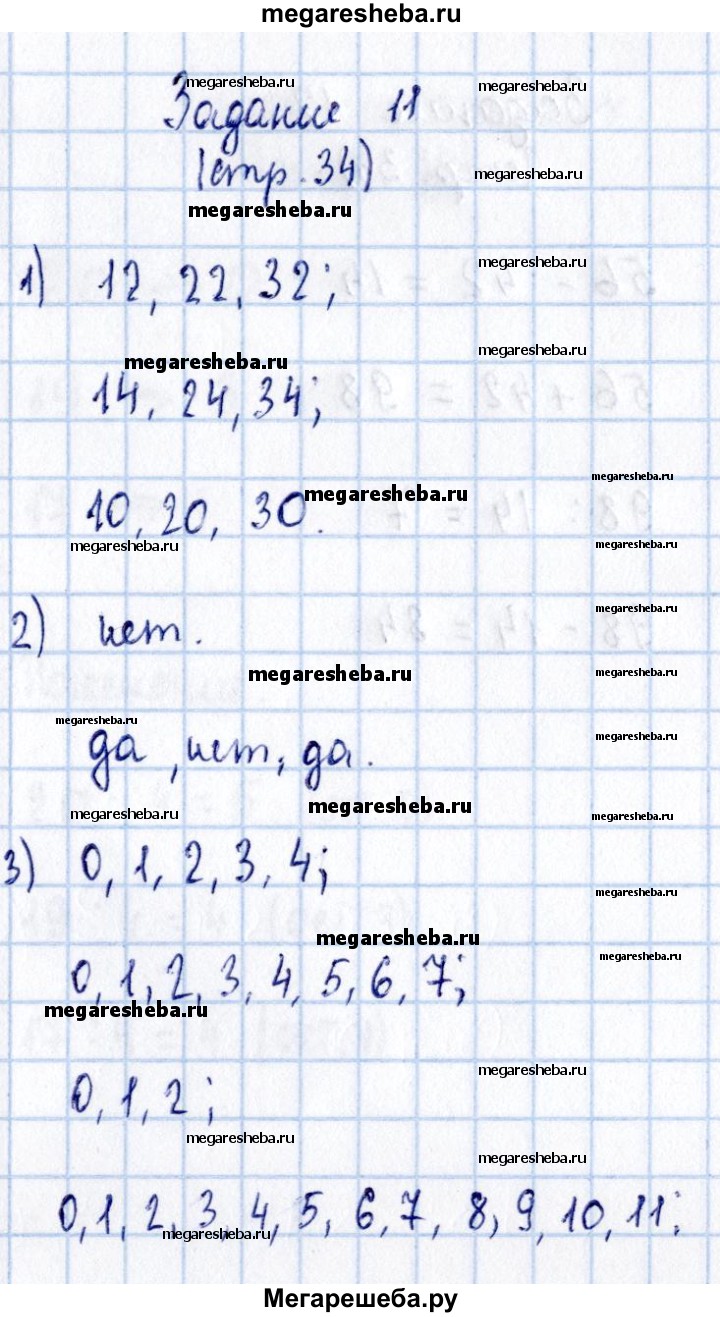 megaresheba.ru
megaresheba.ru
megaresheba.ru
Задание 11
megaresheba.ru
(стр. 34)
megaresheba.ru
megaresheba.ru
1) 12, 22, 32;
megaresheba.ru
megaresheba.ru
14, 24, 34;
megaresheba.ru
megaresheba.ru
10, 20, 30.
megaresheba.ru
megaresheba.ru
megaresheba.ru
2) нет.
megaresheba.ru
megaresheba.ru
megaresheba.ru
megaresheba.ru
да, нет, да.
megaresheba.ru
megaresheba.ru
megaresheba.ru
3) 0, 1, 2, 3, 4;
megaresheba.ru
megaresheba.ru
megaresheba.ru
0, 1, 2, 3, 4, 5, 6, 7;
megaresheba.ru
megaresheba.ru
0, 1, 2;
megaresheba.ru
megaresheba.ru
0, 1, 2, 3, 4, 5, 6, 7, 8, 9, 10, 11;
megaresheba.ru
Мегарешеба.ру